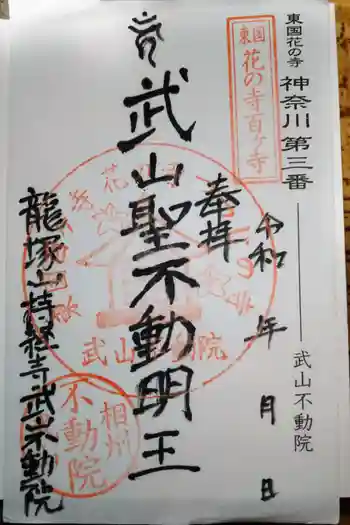 東国花の寺 神奈川 第三番 ―― 武山不動院
東国
花の寺百ヶ寺
奉拝
令和 年 月 日
武山聖不動明王
武山不動院
龍塚山持経寺武山不動院
相州
不動院